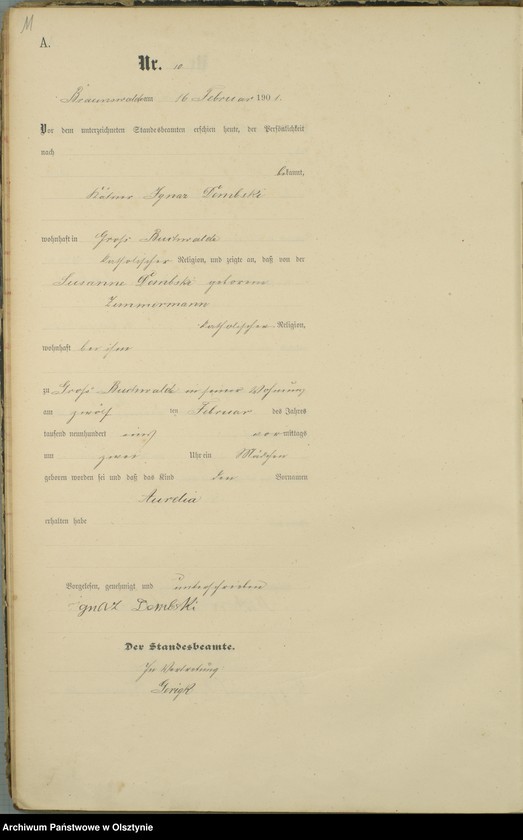 M
A.
Nr. 10
Braunswalde am 16 Februar 1901.
Vor dem unterzeichneten Standesbeamten erschien heute, der Persönlichkeit
nach
bekannt,
Kätner Ignaz Dembski
wohnhaft in Groß Buchwalde
katholischer Religion, und zeigte an, daß von der
Susanna Dembski geborene
Zimmermann
katholischer Religion,
wohnhaft bei ihm
zu Groß Buchwalde in seiner Wohnung
am zwölf ten Februar des Jahres
tausend neunhundert eins vormittags
um zwei Uhr ein Mädchen
geboren worden sei und daß das Kind den Vornamen
Aurelia
erhalten habe
Vorgelesen, genehmigt und unterschrieben
Ignaz Dembski
Der Standesbeamte.
In Vertretung
Gerigk
Archiwum Państwowe w Olsztynie